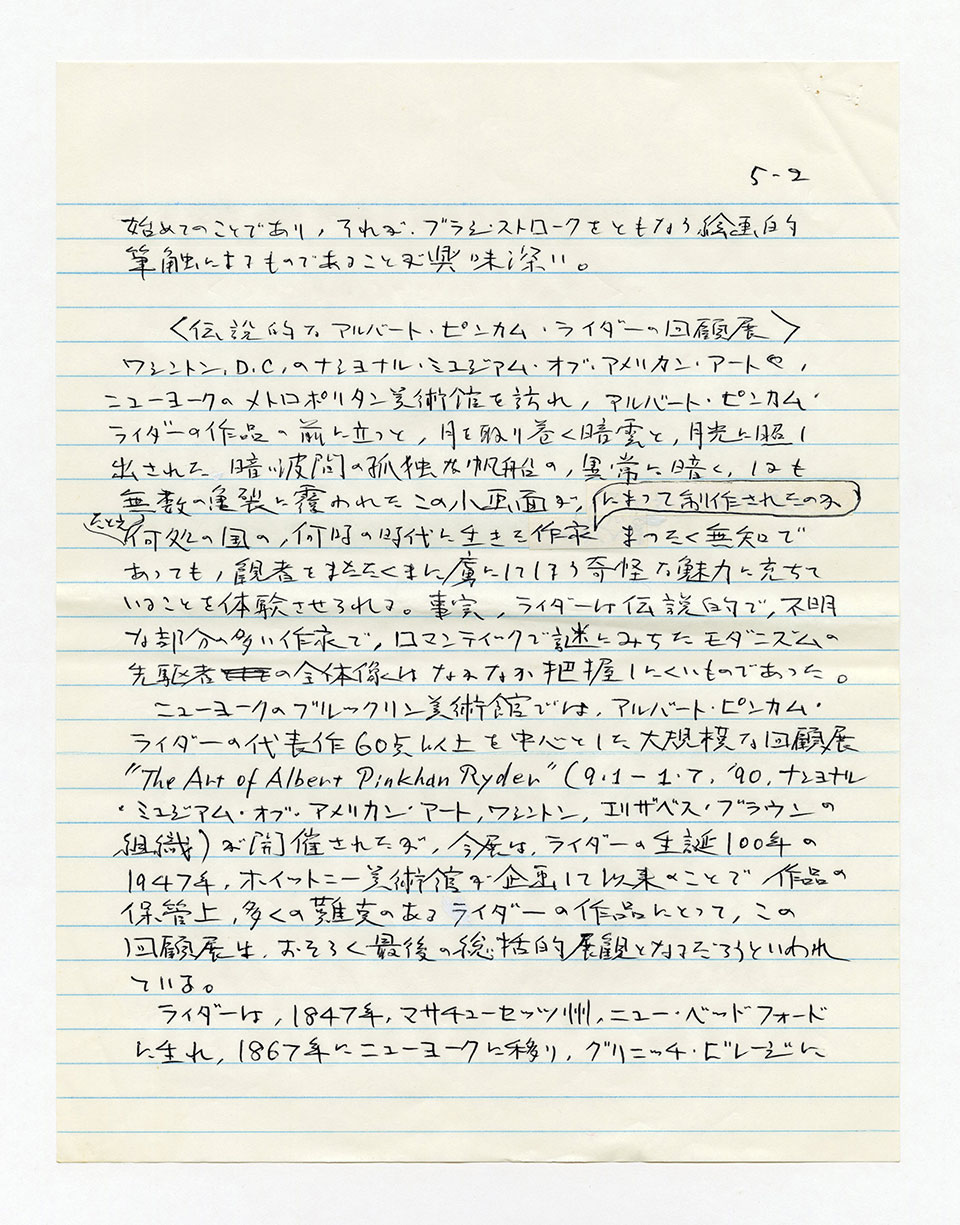 5-2
始めてのことであり、それが、ブラシ・ストロークをともなう絵画的
筆触によるものであることが興味深い。
〈伝説的なアルバート・ピンカム・ライダーの回顧展〉
ワシントン,D.C,のナショナル・ミュジアム・オブ・アメリカン・アートや,
ニューヨークのメトロポリタン美術館を訪れ,アルバート・ピンカム・
ライダーの作品の前に立つと,月を取り巻く暗雲と,月光に照し
出された暗い波間の孤独な帆船の,異常に暗く,しかも
無数の亀裂に覆われたこの小画面が,によって制作されたのか
たとえ
何処の国の,何時の時代に生きた作家 まったく無知で
あっても,観者をまたたくまに虜にしてしまう奇怪な魅力に充ちて
いることを体験させられる。事実,ライダーは伝説的で,不明
な部分の多い作家で,ロマンティックで謎にみちたモダニズムの
先駆者の全体像はなかなか把握しにくいものであった。
ニューヨークのブルックリン美術館では,アルバート・ピンカム・
ライダーの代表作60点以上を中心とした大規模な回顧展
"The Art of Albert Pinkhan Ryder"(9.1-1.7.'90,ナショナル
・ミュジアム・オブ・アメリカン・アート,ワシントン,エリザベス・ブラウンの
組織)が開催されたが,今展は,ライダーの生誕100年の
1947年,ホイットニー美術館が企画して以来のことで 作品の
保管上,多くの難点のあるライダーの作品にとって,この
回顧展は,おそらく最後の総括的展観となるだろうといわれ
ている。
ライダーは,1847年,マサチューセッツ州,ニュー・ベッドフォード
に生れ,1867年にニューヨークに移り,グリニッチ・ビレージに